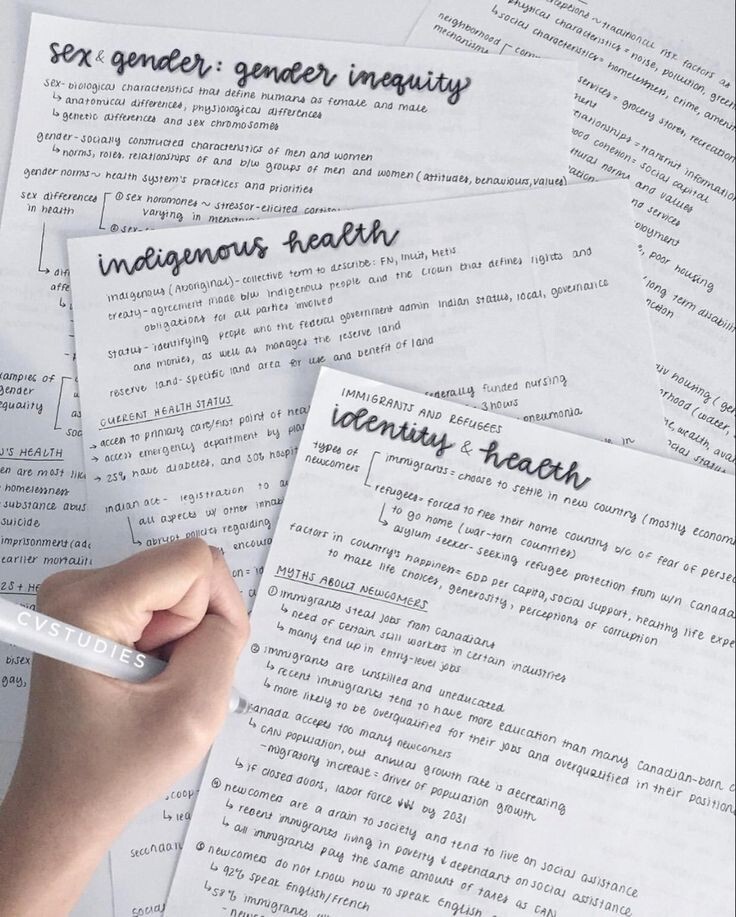 sex & gender: gender inequity
sex- biological characteristics that define humans as female and male
↳ anatomical differences, physiological differences
↳ genetic differences and sex chromosomes
gender- socially constructed characteristics of men and women
↳ norms, roles, relationships of and b/w groups of men and women (attitudes, behaviours, values)
gender norms ~ health system's practices and priorities
sex differences
in health
① sex hormones ~ stressor-elicited
varying in
② sex-
↳ dif
affe
examples of
gender
equality
soc
'S HEALTH
en are most
homelessness
substance abus
suicide
imprisonment
earlier mortali
2S + HE
bisex
gay,
indigenous health
indigenous (Aboriginal)- collective term to describe: FN, Inuit, Metis
treaty- agreement made b/w indigenous people and the crown that defines rights and
obligations for all parties involved
status- identifying people who the federal government admin Indian status, local, governance
and monies, as well as manages the reserve land
reserve land- specific land area for use and benefit of land
CURRENT HEALTH STATUS
→ access to primary care/first point of hea
federally funded nursing
→ access emergency department by pla
3 hours
→ 25% have diabetes, and 30% hospit
pneumonia
indian act- legistration to
all aspects w/ other
↳ abrupt policies regarding
encoura
scoop-
↳ lea
secondary
social
IMMIGRANTS AND REFUGEES
identity & health
types of
newcomers
immigrants= choose to settle in new country (mostly econom
refugees= forced to flee their home country b/c of fear of persec
to go home (war-torn countries)
↳ asylum seeker- seeking refugee protection from w/n Canada
factors in country's happiness= GDP per capita, social support, healthy life expe
to make life choices, generosity, perceptions of corruption
MYTHS ABOUT NEWCOMERS
① immigrants steal jobs from Canadians
↳ need of certain skill workers in certain industries
↳ many end up in entry-level jobs
② immigrants are unskilled and uneducated
↳ recent immigrants tend to have more education than many Canadian-born
↳ more likely to be overqualified for their jobs and overqualified in their position
Canada accepts too many newcomers
↳ CAN population, but annual growth rate is decreasing
- migratory increase = driver of population growth
↳ if closed doors, labor force ↓↓ by 2031
④ newcomers are a drain to society and tend to live on social assistance
↳ recent immigrants living in poverty ↓ dependant on social assistance
↳ all immigrants pay the same amount of taxes as CAN
⑤ newcomers do not know how to speak English
↳ 92% speak English/French
↳ 58% immigrants
~ traditional risk factors as
physical characteristics = noise, pollution, green
neighborhood
mechanisms
↳ social characteristics= homelessness, crime, amenit
services= grocery stores, recreation
relationships = transmit information
cohesion= social capital
norms and values
no services
ployment
, poor housing
long term disabilit
housing
(water,
wealth,
social status
CVSTUDIES